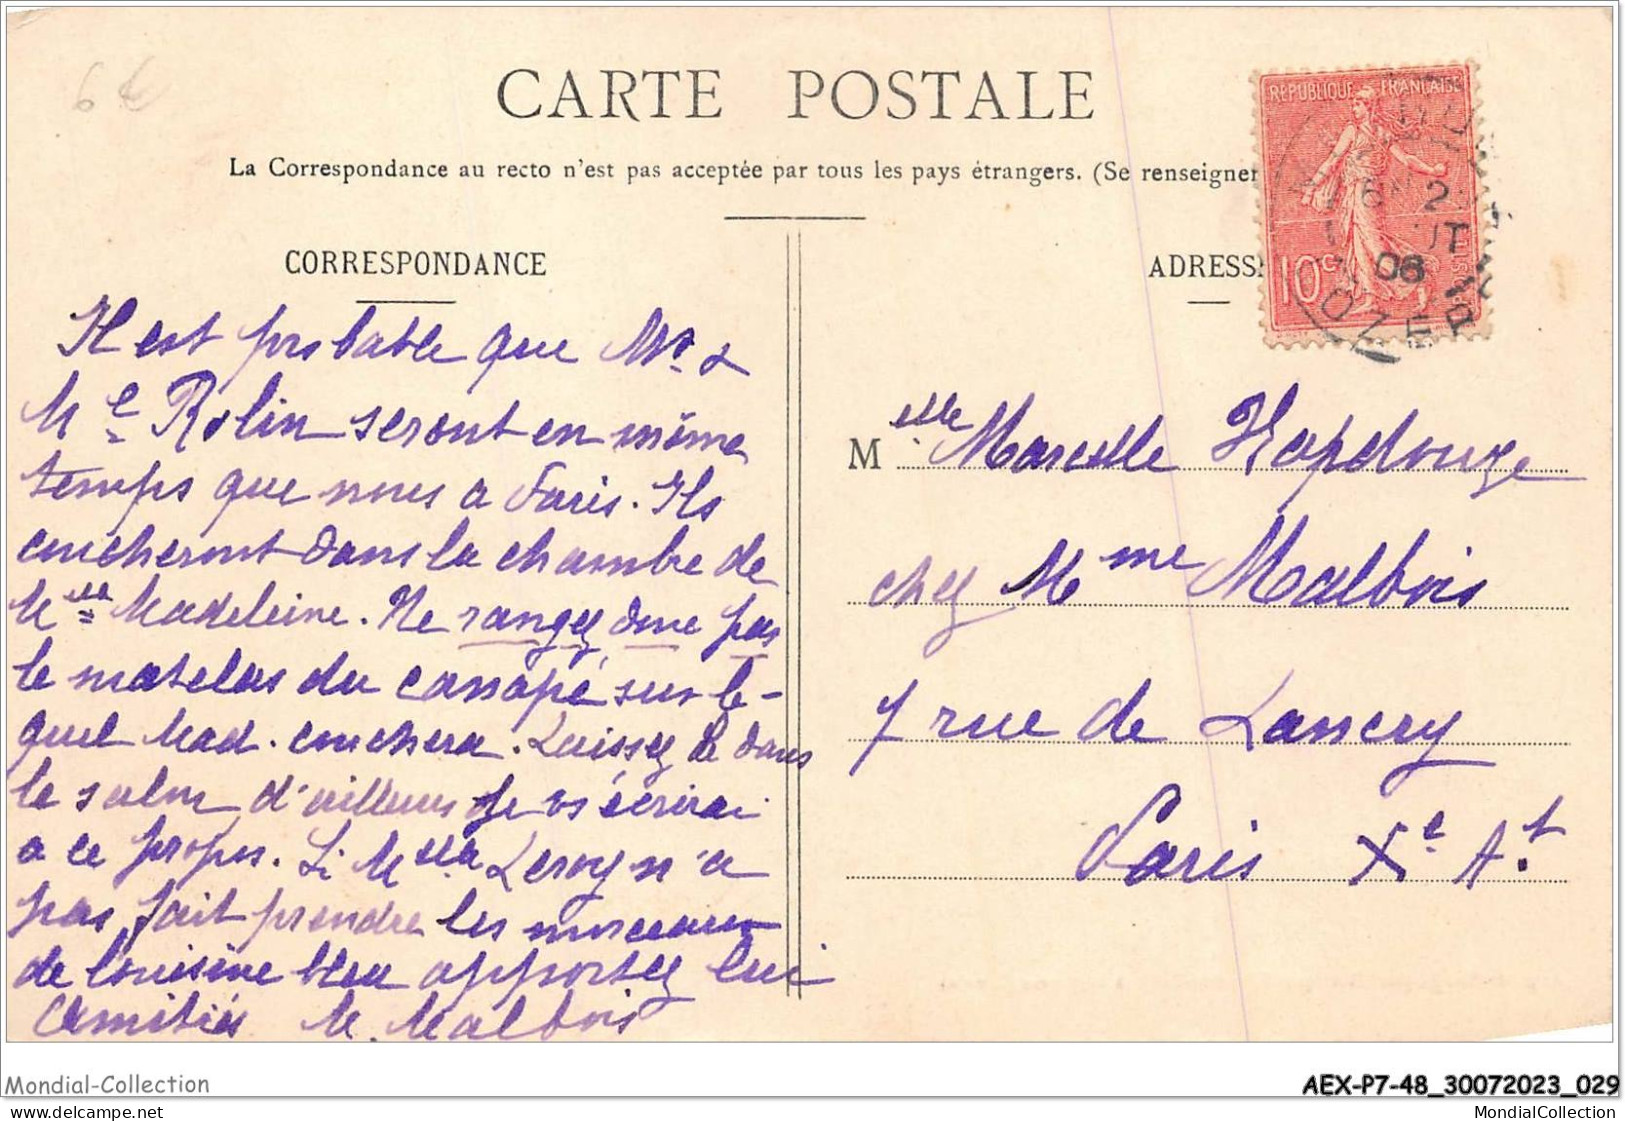 6€
CARTE POSTALE
La Correspondance au recto n'est pas acceptée par tous les pays étrangers. (Se renseigner
REPUBLIQUE FRANÇAISE
10 c
06
LOZÈRE
CORRESPONDANCE
ADRESS
Il est probable que Mr. &
Me Rolin seront en même
temps que nous a Paris. Ils
coucheront dans la chambre de
Melle Madeleine. Ne rangez donc pas
le matelas du canapé sur le-
quel Mad. couchera. Laissez le dans
le salon d'ailleurs je vs écrirai
a ce propos. Si Melle Leroy n'a
pas fait prendre les morceaux
de louisine bleu apportez lui
Amitiés M. Malbois
Melle Marcelle
chez Mme Malbois
7 rue de Lancry
Paris Xe At.
Mondial-Collection
AEX-P7-48_30072023_029
www.mondial-collection.com
MondialCollection